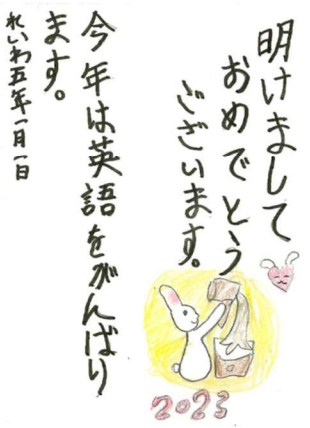 明けまして
おめでとう
ございます。
今年は英語をがんばり
ます。
れいわ五年一月一日
2023